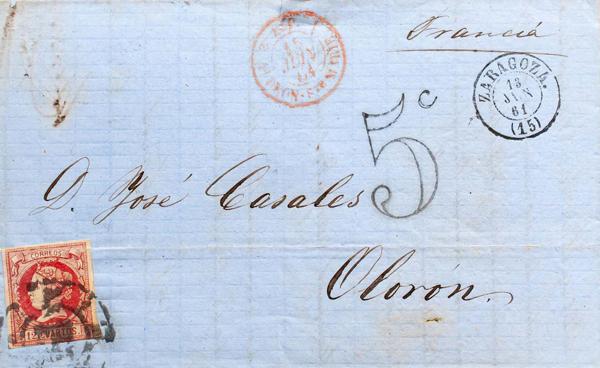 Francia
ZARAGOZA.
13
JUN
61
(15)
5c
D. José Casales
Olorón.
CORREOS
12 CUARTOS.
JUIN